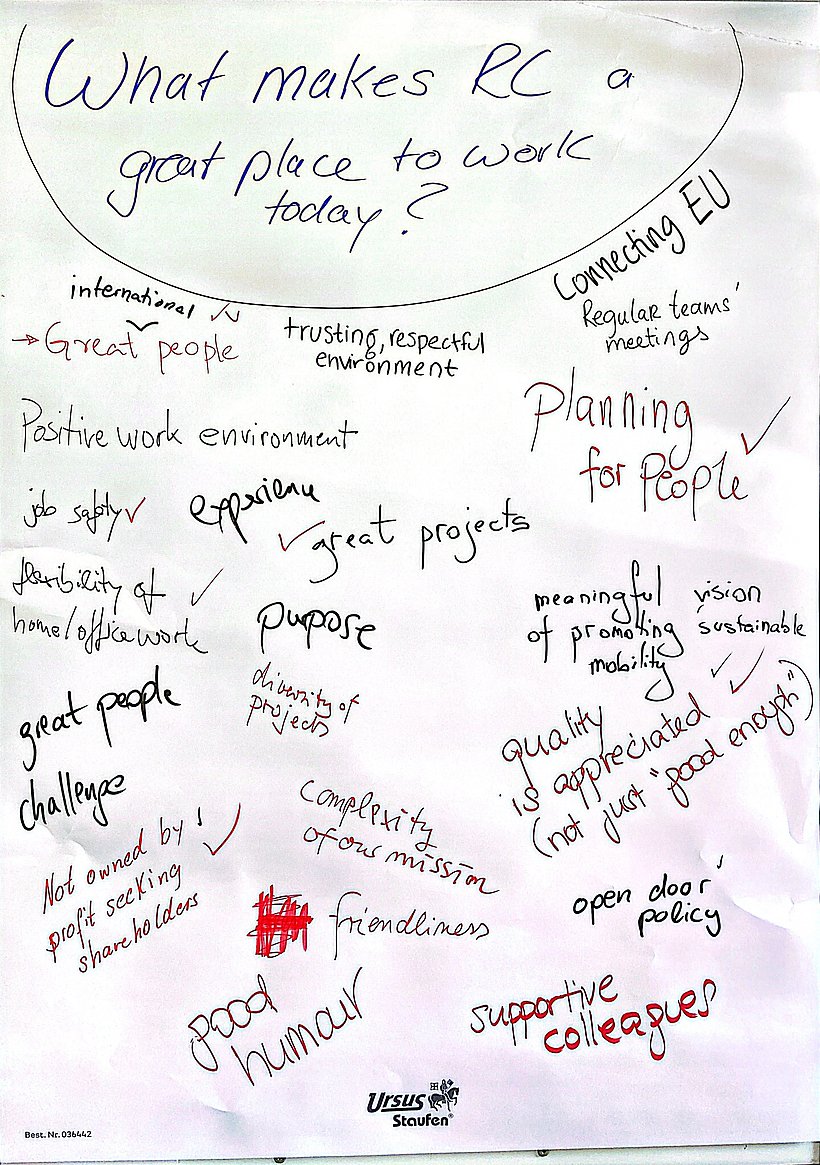 What makes RC a
great place to work
today?
Connecting EU
international
→ Great people
trusting, respectful
environment
Regular teams'
meetings
Positive work environment
Planning
for People
job safety
experience
great projects
flexibility of
home/office work
purpose
meaningful vision
of promoting sustainable
mobility
great people
diversity of
projects
quality
is appreciated
(not just "good enough")
challenge
complexity
of our mission
Not owned by
profit seeking
shareholders
friendliness
open door
policy
good
humour
supportive
colleagues
Ursus
Staufen®
Best. Nr. 036442